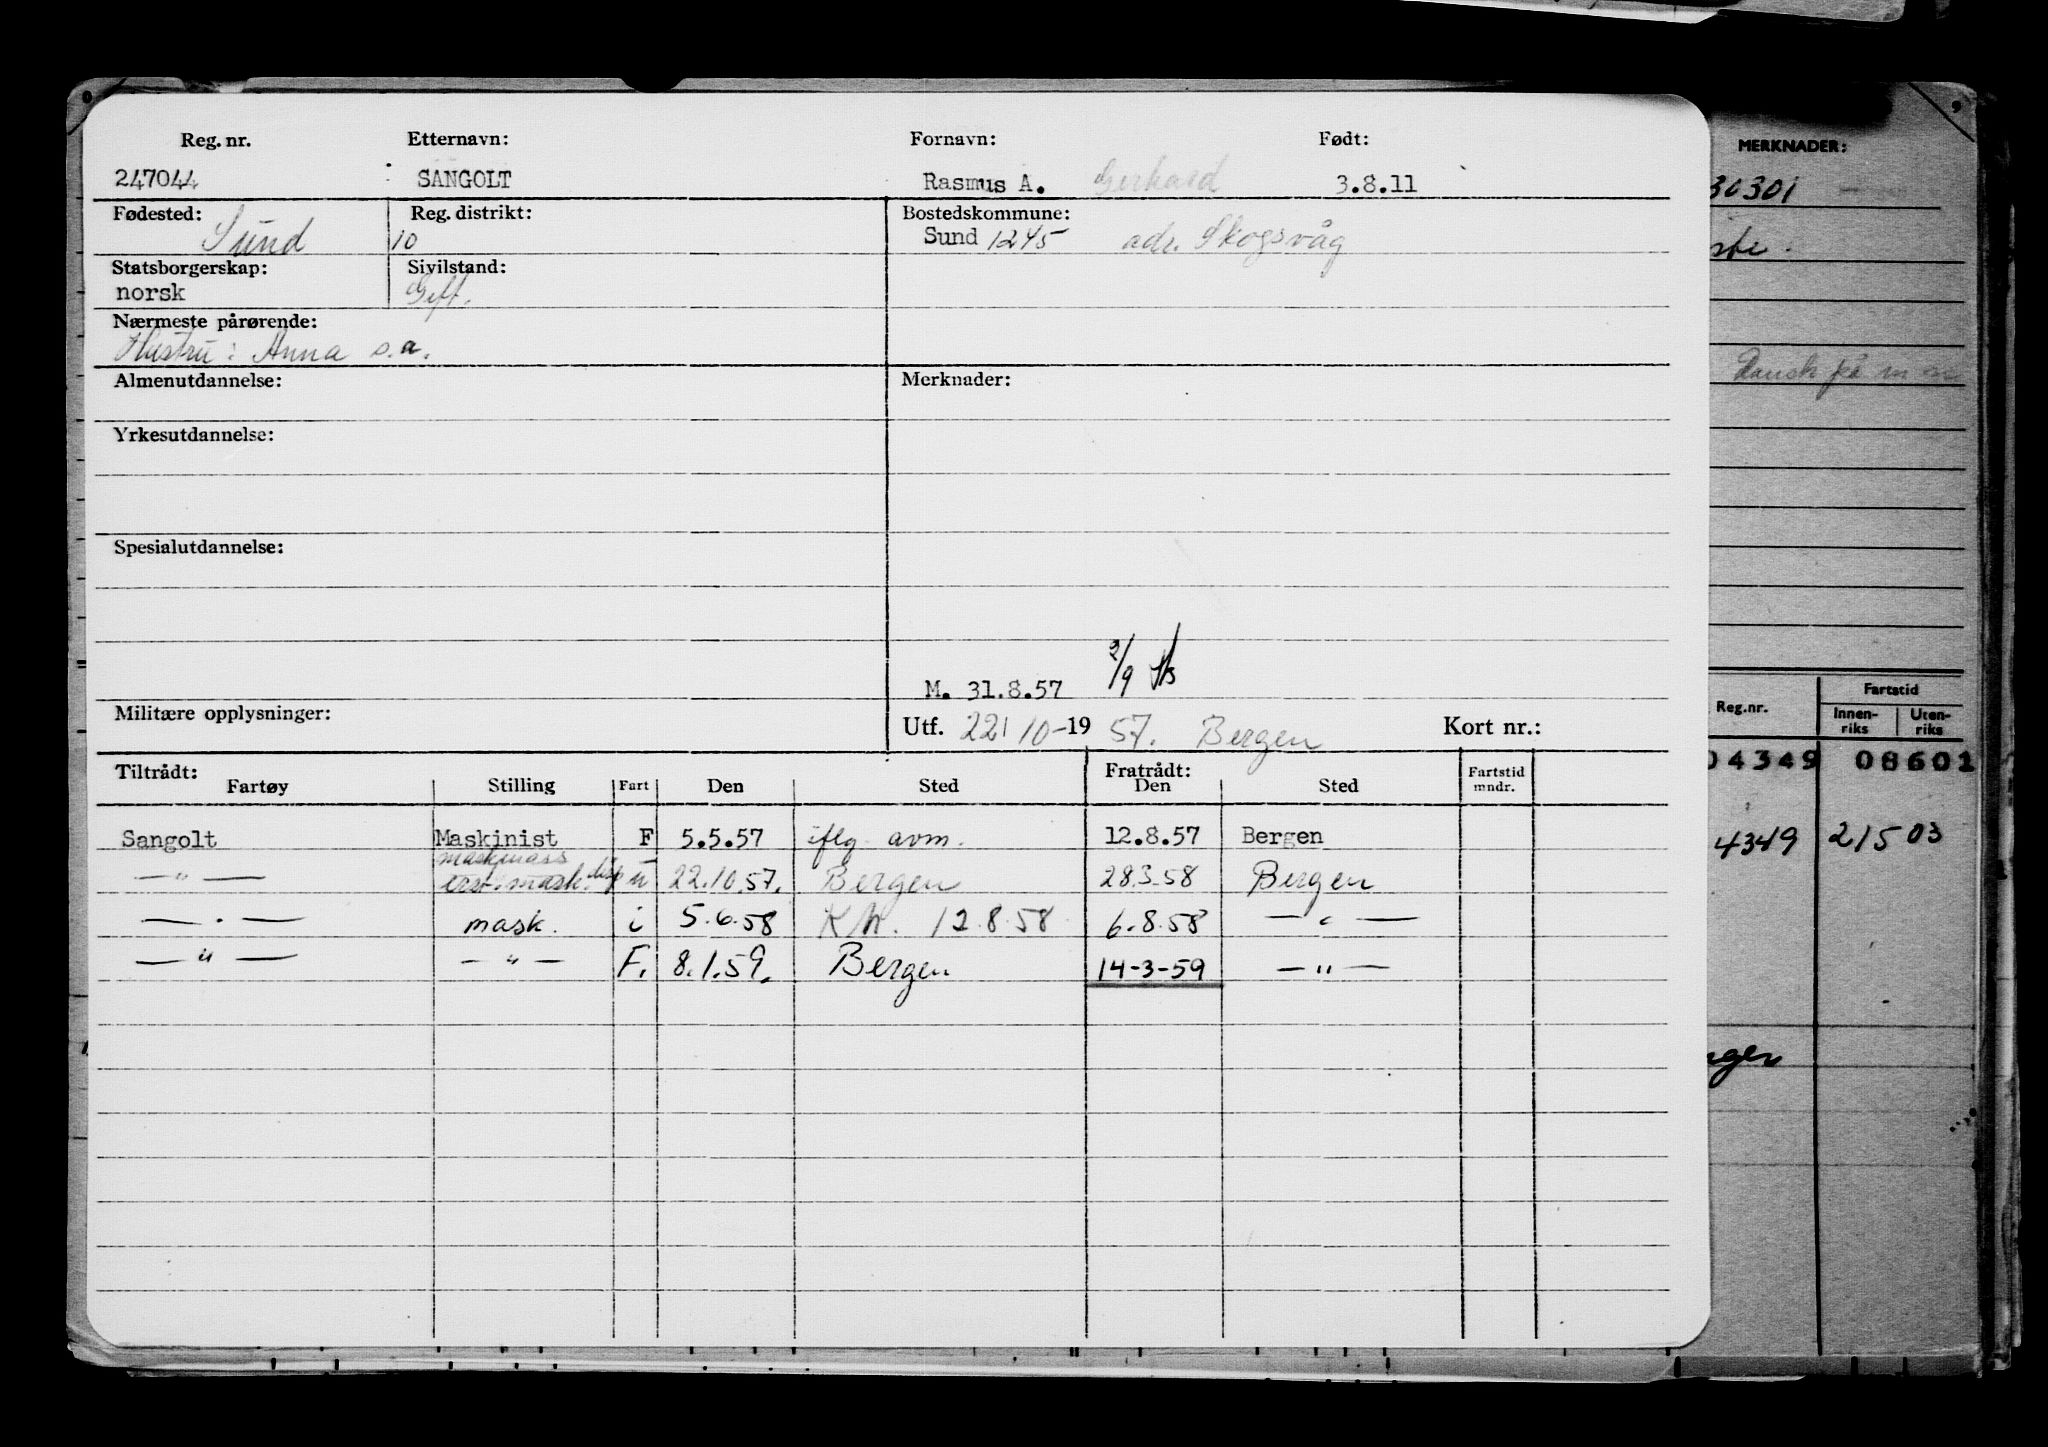 Reg. nr. Etternavn: Fornavn: Født:
247044 SANGOLT Rasmus A. Gerhard 3.8.11
Fødested: Reg. distrikt: Bostedskommune:
Sund 10 Sund 1245 adr. Skogsvåg
Statsborgerskap: Sivilstand:
norsk Gift.
Nærmeste pårørende:
Hustru: Anna s.a.
Almenutdannelse: Merknader:
Yrkesutdannelse:
Spesialutdannelse:
M. 31.8.57 2/9
Militære opplysninger: Utf. 22/10-19 57. Bergen Kort nr.:
Tiltrådt: Fratrådt:
Fartøy Stilling Fart Den Sted Den Sted Fartstid mndr.
Sangolt Maskinist F 5.5.57 iflg avm. 12.8.57 Bergen
maskinass
—"— erst. mask. disp u 22.10.57. Bergen 28.3.58 Bergen
—"— mask. i 5.6.58 K M. 12.8.58 6.8.58 —"—
—"— —"— F. 8.1.59. Bergen 14-3-59 —"—
MERKNADER:
30301
Dansk på
Reg.nr. Fartstid
Innen-riks Uten-riks
04349 08602
4349 21503